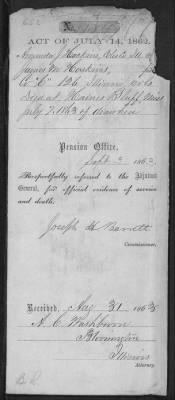 ACT OF JULY 14, 1862.
James M Hoskins,
Co "C" 126 Illinois Vols
Died at Haines Bluff, Miss
July 7. 1863 of diarrhea
Pension Office,
Sept 3 1863.
Respectfully referred to the Adjutant
General, for official evidence of service
and death.
Joseph H Barrett
Commissioner.
Received, Aug 31 1863
A. C. Washburn
Bloomington
Illinois
Attorney.